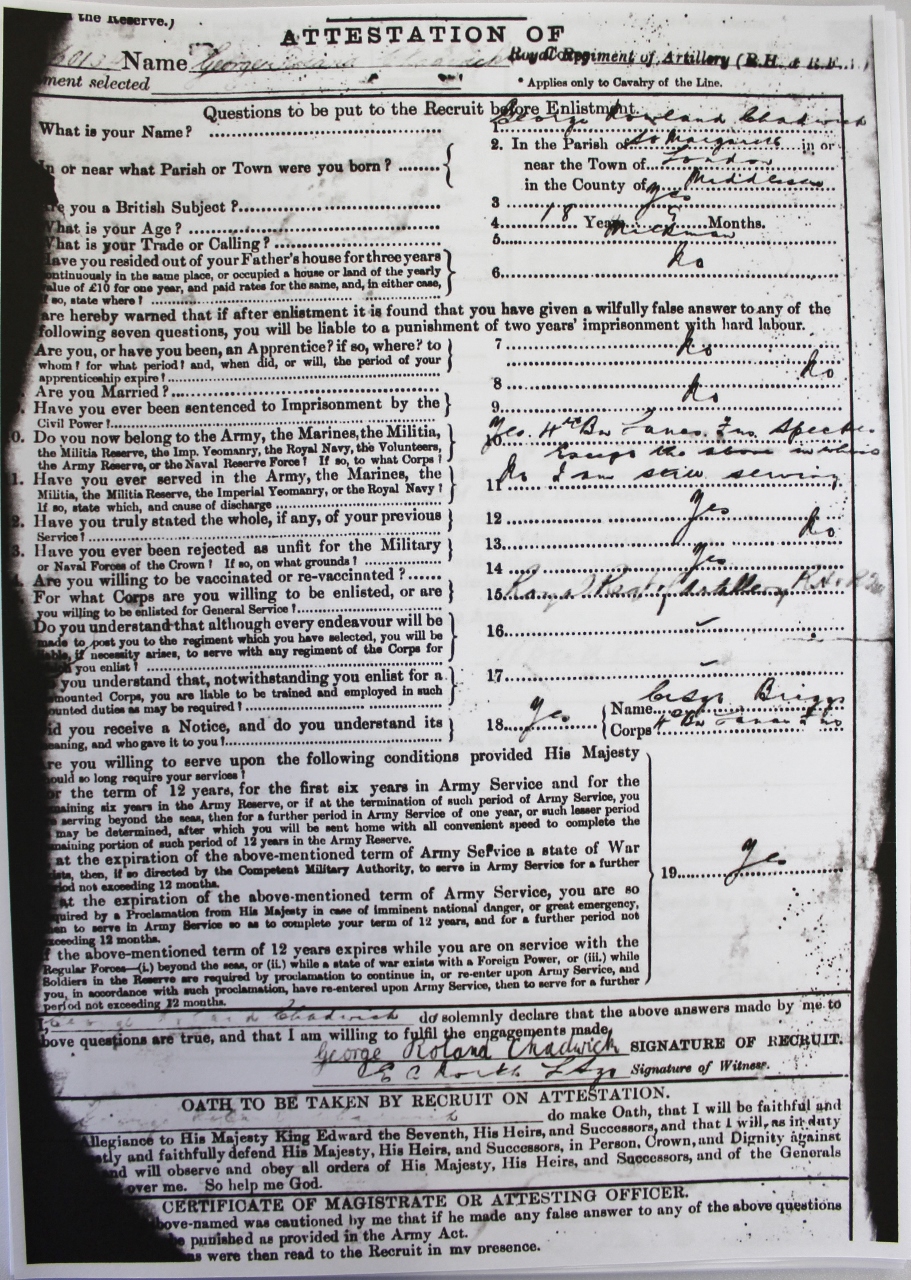 the Reserve.)
ATTESTATION OF
Name George
Royal Regiment of Artillery (R.H. & R.F.A.)
ment selected
* Applies only to Cavalry of the Line.
Questions to be put to the Recruit before Enlistment.
What is your Name? 1. George Rowland Chadwick
n or near what Parish or Town were you born? 2. In the Parish of St Margarets in or
near the Town of London
in the County of Middlesex
re you a British Subject? 3 Yes
What is your Age? 4. 18 Years Months.
What is your Trade or Calling? 5. Milkman
Have you resided out of your Father's house for three years
continuously in the same place, or occupied a house or land of the yearly
value of £10 for one year, and paid rates for the same, and, in either case,
if so, state where? 6. No
are hereby warned that if after enlistment it is found that you have given a wilfully false answer to any of the
following seven questions, you will be liable to a punishment of two years' imprisonment with hard labour.
Are you, or have you been, an Apprentice? if so, where? to
whom? for what period? and, when did, or will, the period of your
apprenticeship expire? 7 No
Are you Married? 8 No
Have you ever been sentenced to Imprisonment by the
Civil Power? 9. No
0. Do you now belong to the Army, the Marines, the Militia,
the Militia Reserve, the Imp. Yeomanry, the Royal Navy, the Volunteers,
the Army Reserve, or the Naval Reserve Force? If so, to what Corps? 10 Yes. 4th Bn Lancs Fus
1. Have you ever served in the Army, the Marines, the
Militia, the Militia Reserve, the Imperial Yeomanry, or the Royal Navy?
If so, state which, and cause of discharge 11 No Except the above in which
I am still serving
2. Have you truly stated the whole, if any, of your previous
Service? 12 Yes
3. Have you ever been rejected as unfit for the Military
or Naval Forces of the Crown? If so, on what grounds? 13. No
Are you willing to be vaccinated or re-vaccinated? 14 Yes
For what Corps are you willing to be enlisted, or are
you willing to be enlisted for General Service? 15 Royal Regt of Artillery R.H. &
Do you understand that although every endeavour will be
made to post you to the regiment which you have selected, you will be
liable, if necessity arises, to serve with any regiment of the Corps for
which you enlist? 16
you understand that, notwithstanding you enlist for a
mounted Corps, you are liable to be trained and employed in such
ounted duties as may be required? 17
id you receive a Notice, and do you understand its
eaning, and who gave it to you? 18. Yes { Name Briggs
Corps 4 Bn Lancs Fus
re you willing to serve upon the following conditions provided His Majesty
ould so long require your services?
or the term of 12 years, for the first six years in Army Service and for the
maining six years in the Army Reserve, or if at the termination of such period of Army Service, you
serving beyond the seas, then for a further period in Army Service of one year, or such lesser period
may be determined, after which you will be sent home with all convenient speed to complete the
maining portion of such period of 12 years in the Army Reserve.
at the expiration of the above-mentioned term of Army Service a state of War
ists, then, if so directed by the Competent Military Authority, to serve in Army Service for a further
riod not exceeding 12 months.
at the expiration of the above-mentioned term of Army Service, you are so
quired by a Proclamation from His Majesty in case of imminent national danger, or great emergency,
en to serve in Army Service so as to complete your term of 12 years, and for a further period not
xceeding 12 months.
f the above-mentioned term of 12 years expires while you are on service with the
Regular Forces—(i.) beyond the seas, or (ii.) while a state of war exists with a Foreign Power, or (iii.) while
Soldiers in the Reserve are required by proclamation to continue in, or re-enter upon Army Service, and
you, in accordance with such proclamation, have re-entered upon Army Service, then to serve for a further
period not exceeding 12 months.
19. Yes
I, Chadwick do solemnly declare that the above answers made by me to
bove questions are true, and that I am willing to fulfil the engagements made.
George Roland Chadwick SIGNATURE OF RECRUIT.
E C North Signature of Witness.
OATH TO BE TAKEN BY RECRUIT ON ATTESTATION.
do make Oath, that I will be faithful and
Allegiance to His Majesty King Edward the Seventh, His Heirs, and Successors, and that I will, as in duty
stly and faithfully defend His Majesty, His Heirs, and Successors, in Person, Crown, and Dignity against
nd will observe and obey all orders of His Majesty, His Heirs, and Successors, and of the Generals
over me. So help me God.
CERTIFICATE OF MAGISTRATE OR ATTESTING OFFICER.
bove-named was cautioned by me that if he made any false answer to any of the above questions
be punished as provided in the Army Act.
s were then read to the Recruit in my presence.